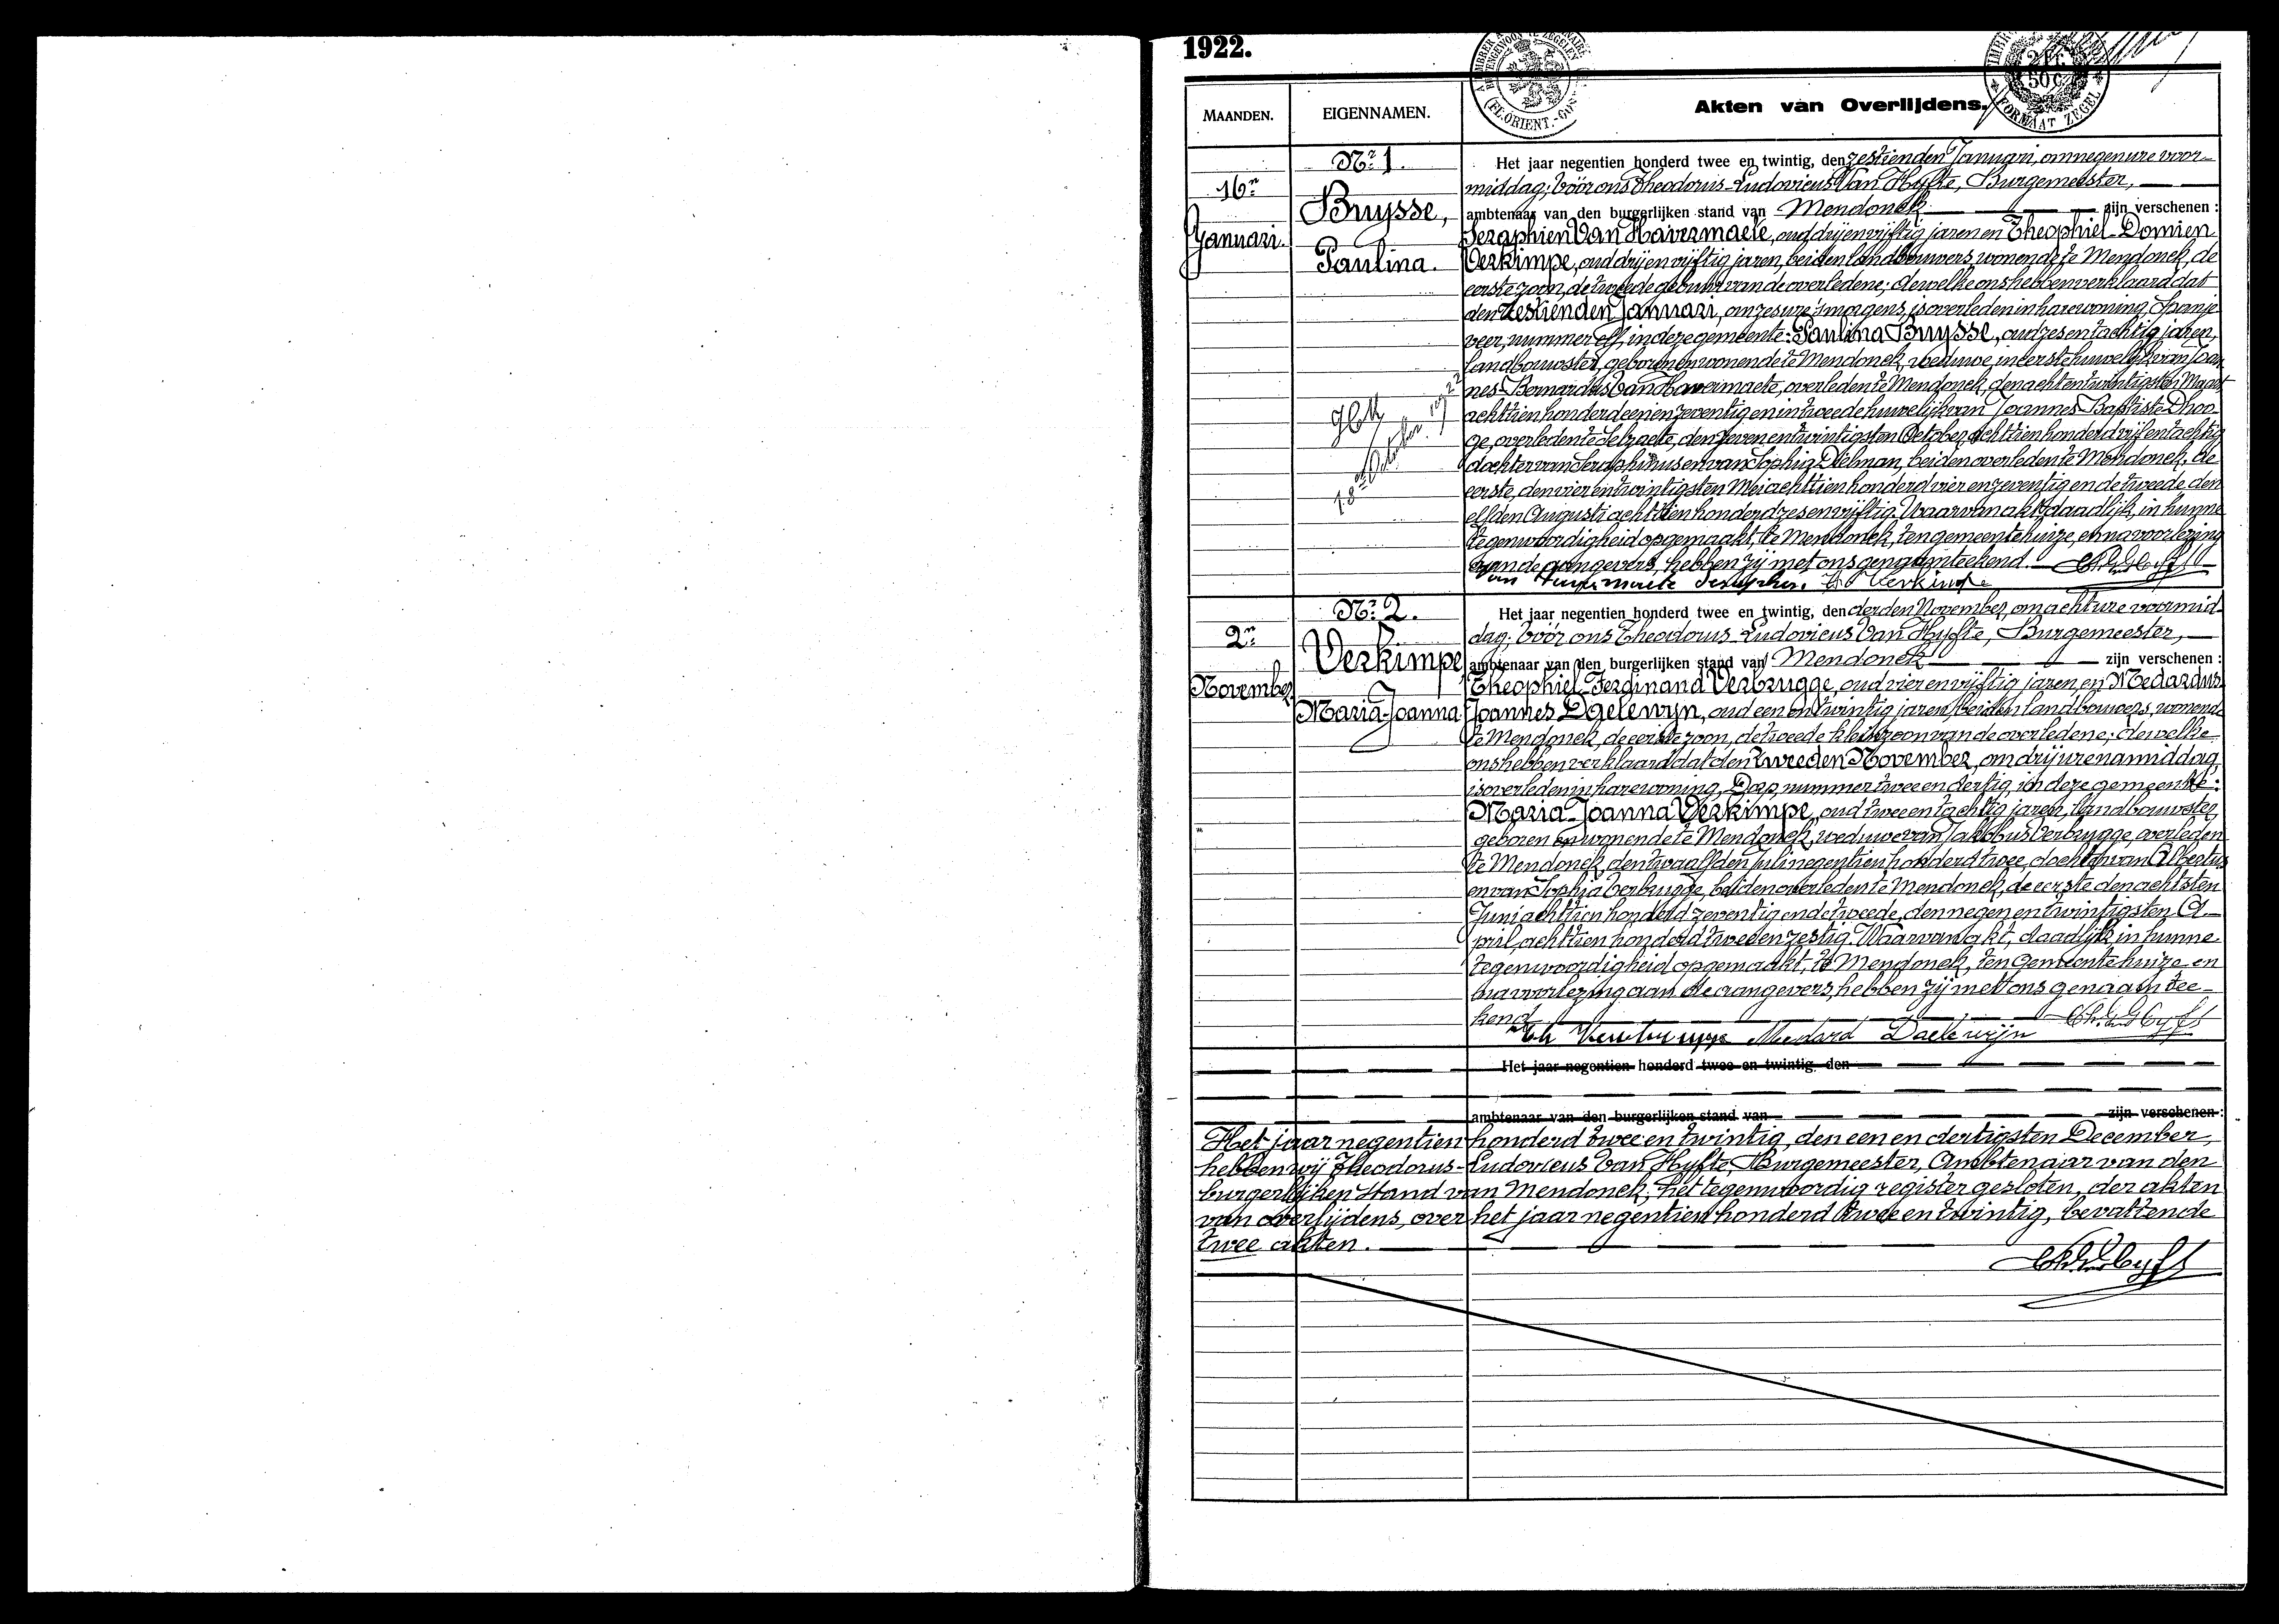 1922.
MAANDEN.
EIGENNAMEN.
Akten van Overlijdens.
2 Fr. 50 c.
FORMAAT ZEGEL
16n
Januari.
Nr 1.
Buysse,
Paulina.
Het jaar negentien honderd twee en twintig, den zestienden Januari, om negen ure voor-
middag; vóór ons Theodorus-Ludovicus Van Hyfte, Burgemeester,
ambtenaar van den burgerlijken stand van Mendonck zijn verschenen :
Seraphien Van Havermaete, oud drij en vijftig jaren en Theophiel-Domien
Verkimpe, oud drij en vijftig jaren, beiden landbouwers, wonende te Mendonck, de
eerste zoon, de tweede gebuur van de overledene; dewelke ons hebben verklaard dat
den zestienden Januari, om zes ure 's morgens, is overleden in hare woning, Spanje
veer, nummer elf, in deze gemeente: Paulina Buysse, oud zes en tachtig jaren,
landbouwster, geboren en wonende te Mendonck, weduwe, in eerste huwelijk van Joan
nes-Bernardus Van Havermaete, overleden te Mendonck, den acht en twintigsten Maart
achttien honderd een en zeventig en in tweede huwelijk van Joannes Baptiste Dhoo-
ge, overleden te Selzaete, den zeven en twintigsten October achttien honderd vijf en tachtig
dochter van Seraphinus en van Sophia Dielman, beiden overleden te Mendonck, de
eerste, den vier en twintigsten Mei achttien honderd vier en zeventig en de tweede den
elfden Augusti achttien honderd zes en vijftig. Waarvan akt, daadlijk, in hunne
tegenwoordigheid opgemaakt, te Mendonck, ten gemeentehuize, en na voorlezing
aan de aangevers, hebben zij met ons genaamteekend.
Van Havermaete Seraphien. Th Verkimpe
2n
November
Nr 2.
Verkimpe,
Maria-Joanna
Het jaar negentien honderd twee en twintig, den derden November, om acht ure voormid-
dag; vóór ons Theodorus-Ludovicus Van Hyfte, Burgemeester,
ambtenaar van den burgerlijken stand van Mendonck zijn verschenen :
Theophiel-Ferdinand Verbrugge, oud vier en vijftig jaren, en Medardus
Joannes Daelewyn, oud een en twintig jaren, beiden landbouwers, wonende
te Mendonck, de eerste zoon, de tweede kleinzoon van de overledene; dewelke
ons hebben verklaard dat den tweeden November, om drij ure namiddag
is overleden in hare woning, Dorp, nummer twee en dertig, in deze gemeente:
Maria-Joanna Verkimpe, oud twee en tachtig jaren, landbouwster,
geboren en wonende te Mendonck, weduwe van Jakobus Verbrugge, overleden
te Mendonck, den twaalfden Juli negentien honderd twee, dochter van Albertus
en van Sophia Verbrugge, beiden overleden te Mendonck, de eerste den achtsten
Juni achttien honderd zeventig en de tweede, den negen en twintigsten A-
pril, achttien honderd twee en zestig. Waarvan akt, daadlijk in hunne
tegenwoordigheid opgemaakt, te Mendonck, ten Gemeentehuize en
na voorlezing aan de aangevers, hebben zij met ons genaamtee-
kend
Th Verbrugge Medard Daelewijn
Het jaar negentien honderd twee en twintig, den
ambtenaar van den burgerlijken stand van zijn verschenen :
Het jaar negentien honderd twee en twintig, den een en dertigsten December,
hebben wij Theodorus-Ludovicus Van Hyfte, Burgemeester, Ambtenaar van den
burgerlijken Stand van Mendonck, het tegenwoordig register gesloten, der akten
van overlijdens, over het jaar negentien honderd twee en twintig, bevattende
twee akten.